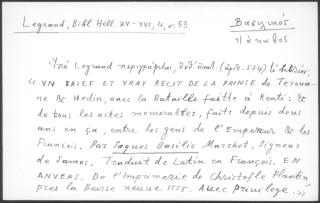 Legrand, Bibl. Hell XV-XVI, 4, σ. 53
Βασιλικός
Ἰάκωβος
Ὑπὸ Legrand περιγράφεται, (ἀριθ. 574) τὸ
« UN BRIEF ET VRAY RECIT DE LA PRINSE de Teroua-
ne & Hedin, avec la Bataille faitte à Renti: &
de tous les actes memorables, faits depuis deux
ans en ça, entre les gens de l'Empereur & les
François. Par Jaques Basilic Marchet, Signeur
de Samos. Traduit de Latin en François. EN
ANVERS. De l'Imprimerie de Christofle Plantin
pres la Bourse neuve 1555. Avec Privilege. »